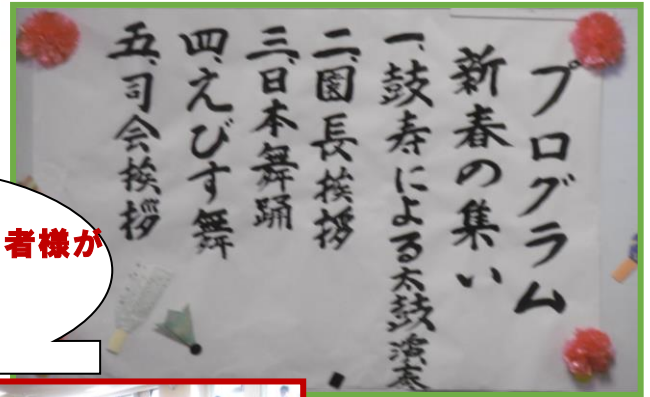 プログラム
新春の集い
一、鼓寿による太鼓演奏
二、園長挨拶
三、日本舞踊
四、えびす舞
五、司会挨拶
者様が